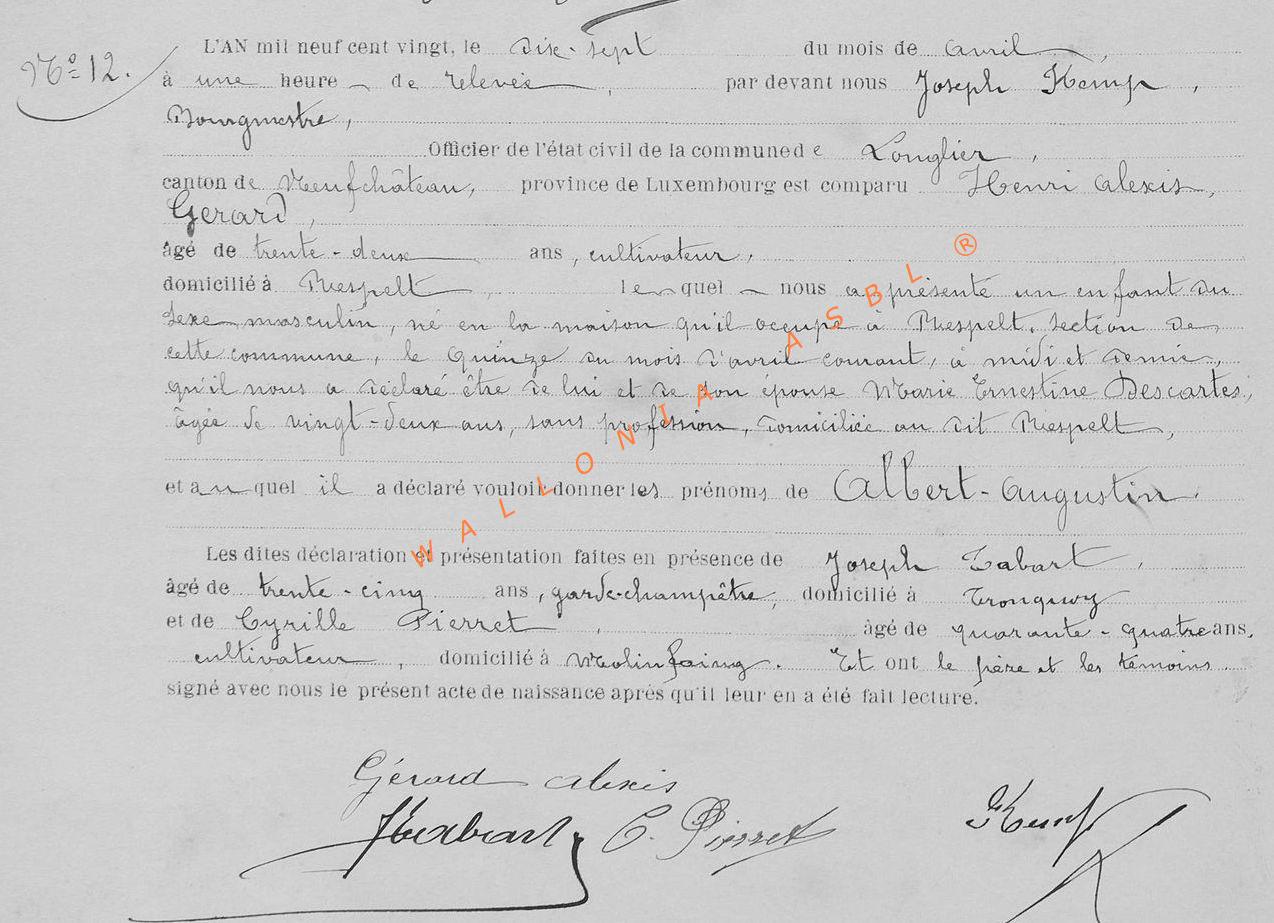 N° 12.
L'AN mil neuf cent vingt, le dix-sept du mois de avril,
à une heure de relevée, par devant nous Joseph Kemp,
Bourgmestre,
Officier de l'état civil de la commune de Longlier,
canton de Neufchâteau, province de Luxembourg est comparu Henri Alexis,
Gerard,
âgé de trente-deux ans, cultivateur,
domicilié à Respelt, lequel nous a présenté un enfant du
sexe masculin, né en la maison qu'il occupe à Respelt, section de
cette commune, le quinze du mois d'avril courant, à midi et demie,
qu'il nous a déclaré être de lui et de son épouse Marie Ernestine Descartes,
âgée de vingt-deux ans, sans profession, domiciliée au dit Respelt,
et auquel il a déclaré vouloir donner les prénoms de Albert-Augustin.
Les dites déclaration et présentation faites en présence de Joseph Tabart,
âgé de trente-cinq ans, garde-champêtre, domicilié à Tronquoy
et de Cyrille Pierret, âgé de quarante-quatre ans,
cultivateur, domicilié à Molinfaing. Et ont le père et les témoins
signé avec nous le présent acte de naissance après qu'il leur en a été fait lecture.
Gérard Alexis
JTabart C. Pierret JKemp
WALLONIA ASBL ®